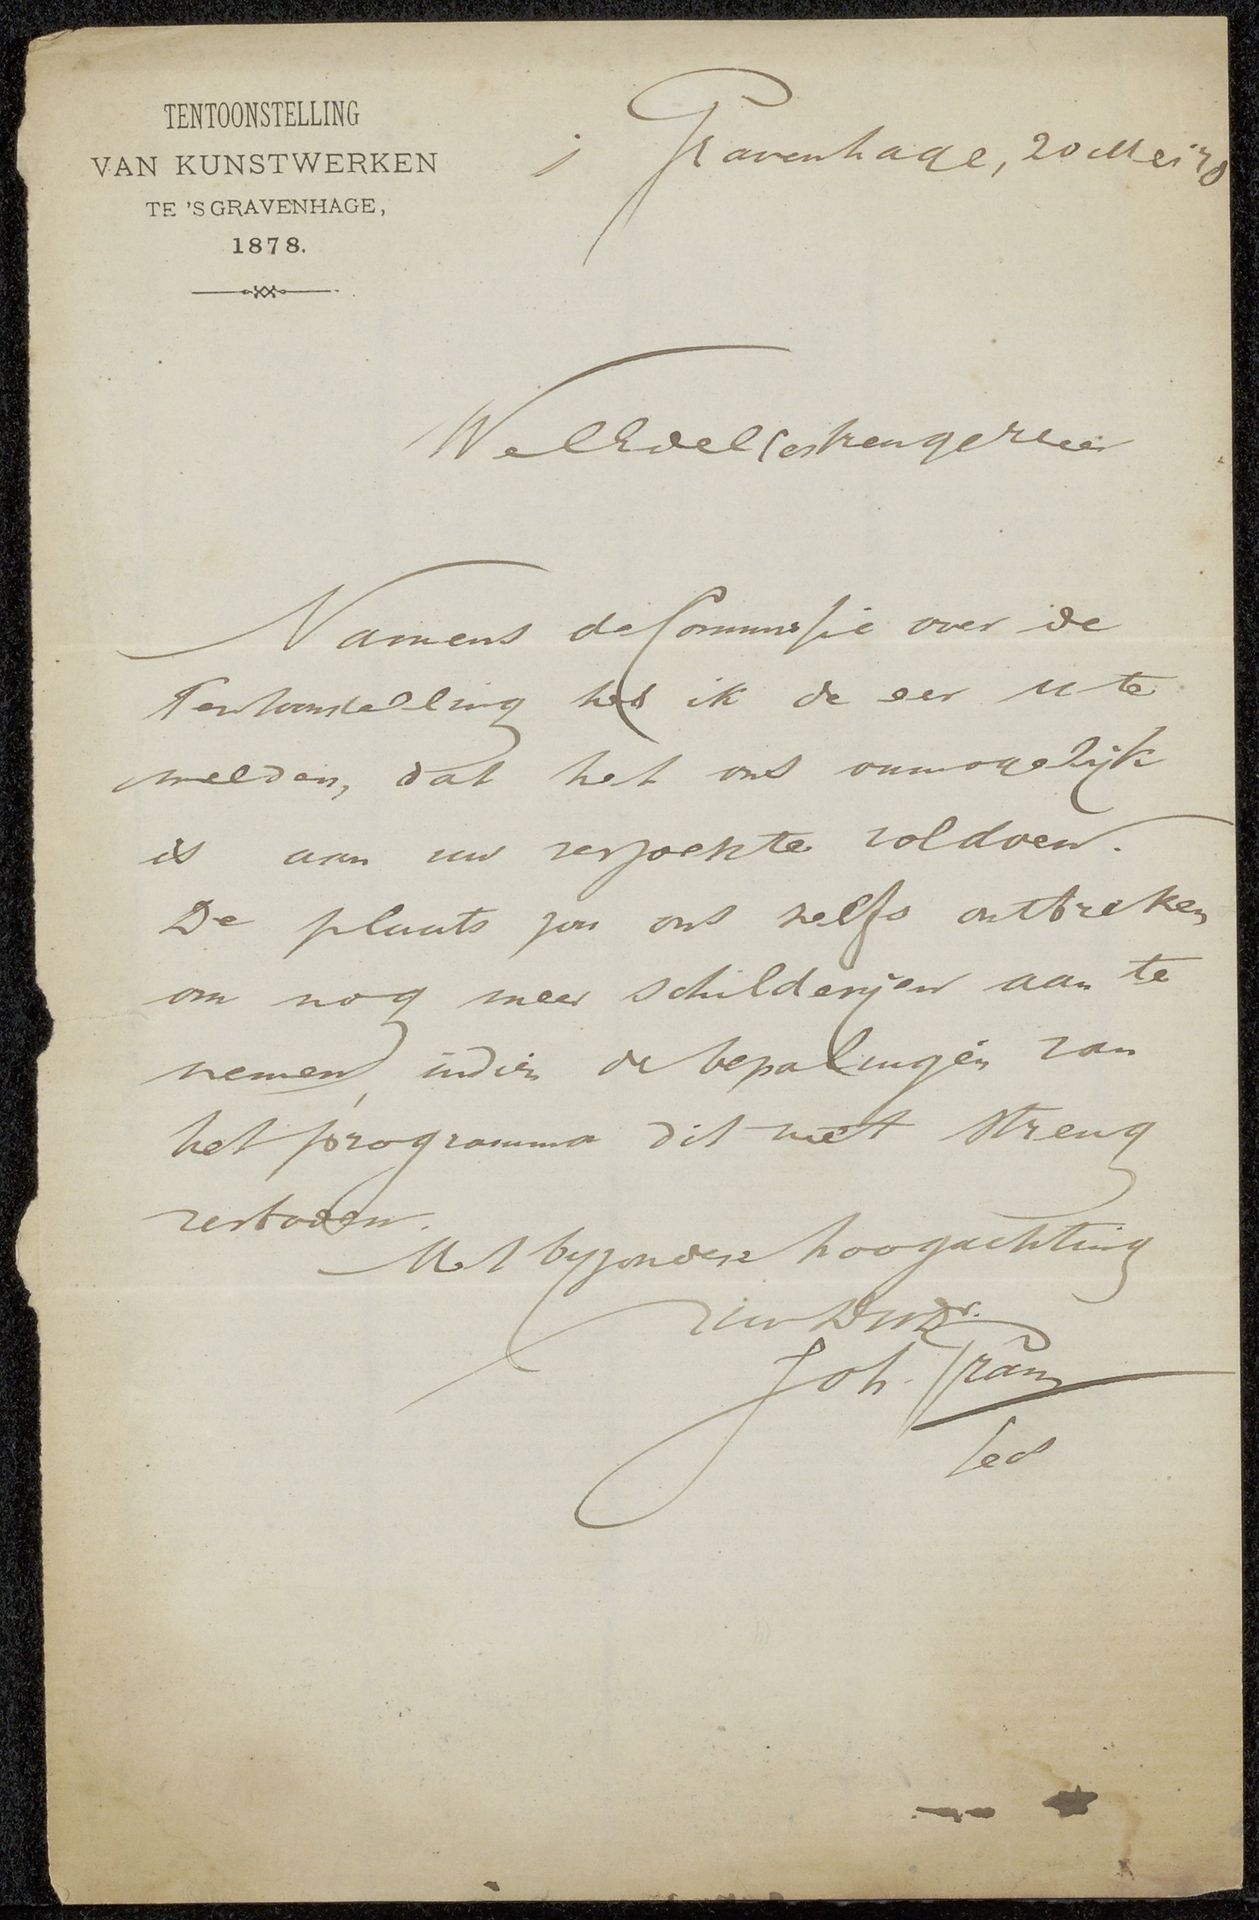 TENTOONSTELLING
VAN KUNSTWERKEN
TE 'SGRAVENHAGE,
1878.
s Gravenhage, 20 Mei 78
WelEdelGestrengeHeer
Namens de Commissie over de
Tentoonstelling heb ik de eer U te
melden, dat het ons onmogelijk
is aan uw verzoek te voldoen.
De plaats zou ons zelfs ontbreken
om nog meer schilderijen aan te
nemen, indien de bepalingen van
het programma dit niet streng
verboden.
Met byzondere hoogachting
Uw DWDr.
Joh. Gram
Secs